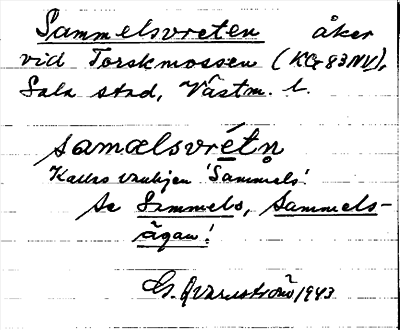 Sammelsvreten åker
vid Torskmossen (KG 83NV),
Sala stad, Västm. l.
samelsvrétn̥
Kallas vanligen 'Sammels'.
Se Sammels, Sammels-
ägan!
G. Qvarnström 1943